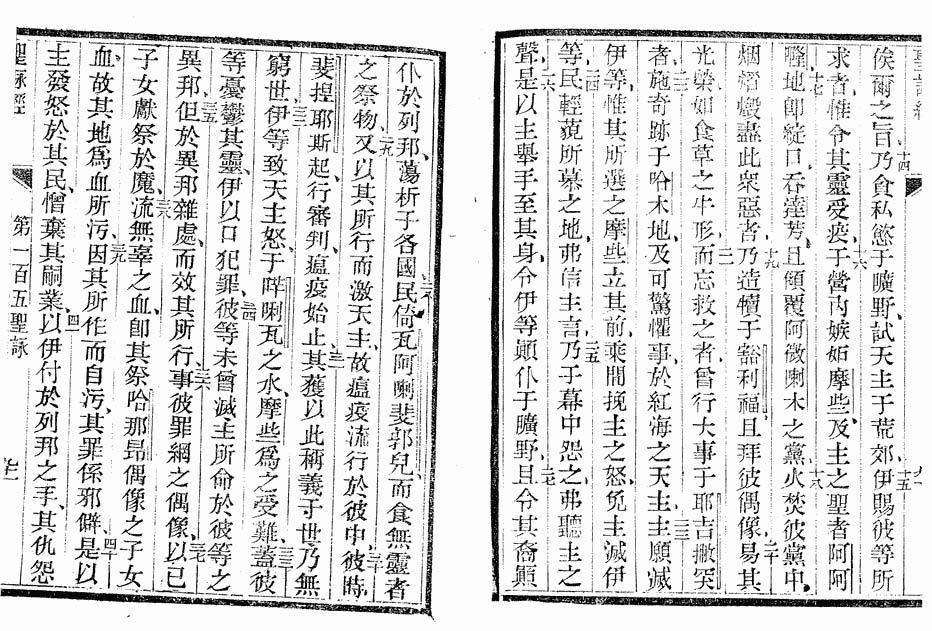 俟爾之旨十四乃食私慾于曠野試天主于荒郊十五伊賜彼等所
求者惟令其靈受疫十六于營內嫉妬摩些及主之聖者阿阿
喠十七地卽綻口吞澾芳且傾覆阿微喇木之黨十八火焚彼黨中
烟熠燬盡此衆惡者十九乃造犢于豁利福且拜彼偶像二十易其
光榮如食草之牛形二一而忘救之者曾行大事于耶吉撇罙
者二二施奇跡于哈木地及可驚懼事於紅海之天主二三主願滅
伊等惟其所選之摩些立其前乘間挽主之怒免主滅伊
等二四民輕藐所慕之地弗信主言二五乃于幕中怨之弗聽主之
聲二六是以主舉手至其身令伊等顚仆于曠野二七且令其裔顚
仆於列邦蕩析于各國二八民倚瓦阿喇斐郭兒而食無靈者
之祭物二九又以其所行而激天主故瘟疫流行於彼中三十彼時
斐捏耶斯起行審判瘟疫始止三一其獲以此稱義于世乃無
窮世三二伊等致天主怒于哶唎瓦之水摩些爲之受難三三蓋彼
等憂鬱其靈伊以口犯罪三四彼等未曾滅主所命於彼等之
異邦三五但於異邦雜處而效其所行三六事彼罪網之偶像三七以已
子女獻祭於魔三八流無辜之血卽其祭哈那昂偶像之子女
血故其地爲血所污三九因其所作而自污其罪係邪僻四十是以
主發怒於其民憎棄其嗣業四一以伊付於列邦之手其仇怨
聖詠經 第一百五聖詠